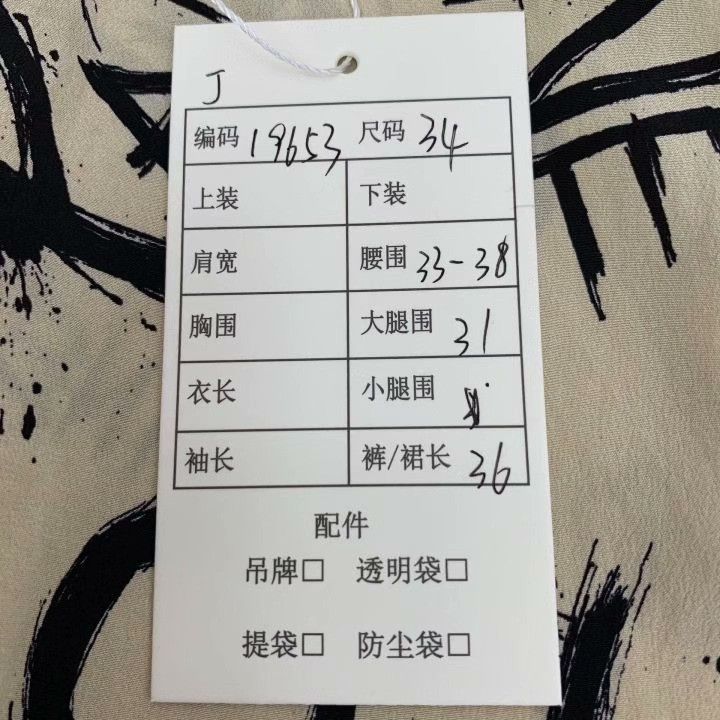 J
编码 19653 尺码 34
上装 下装
肩宽 腰围 33-38
胸围 大腿围 31
衣长 小腿围
袖长 裤/裙长 36
配件
吊牌□ 透明袋□
提袋□ 防尘袋□